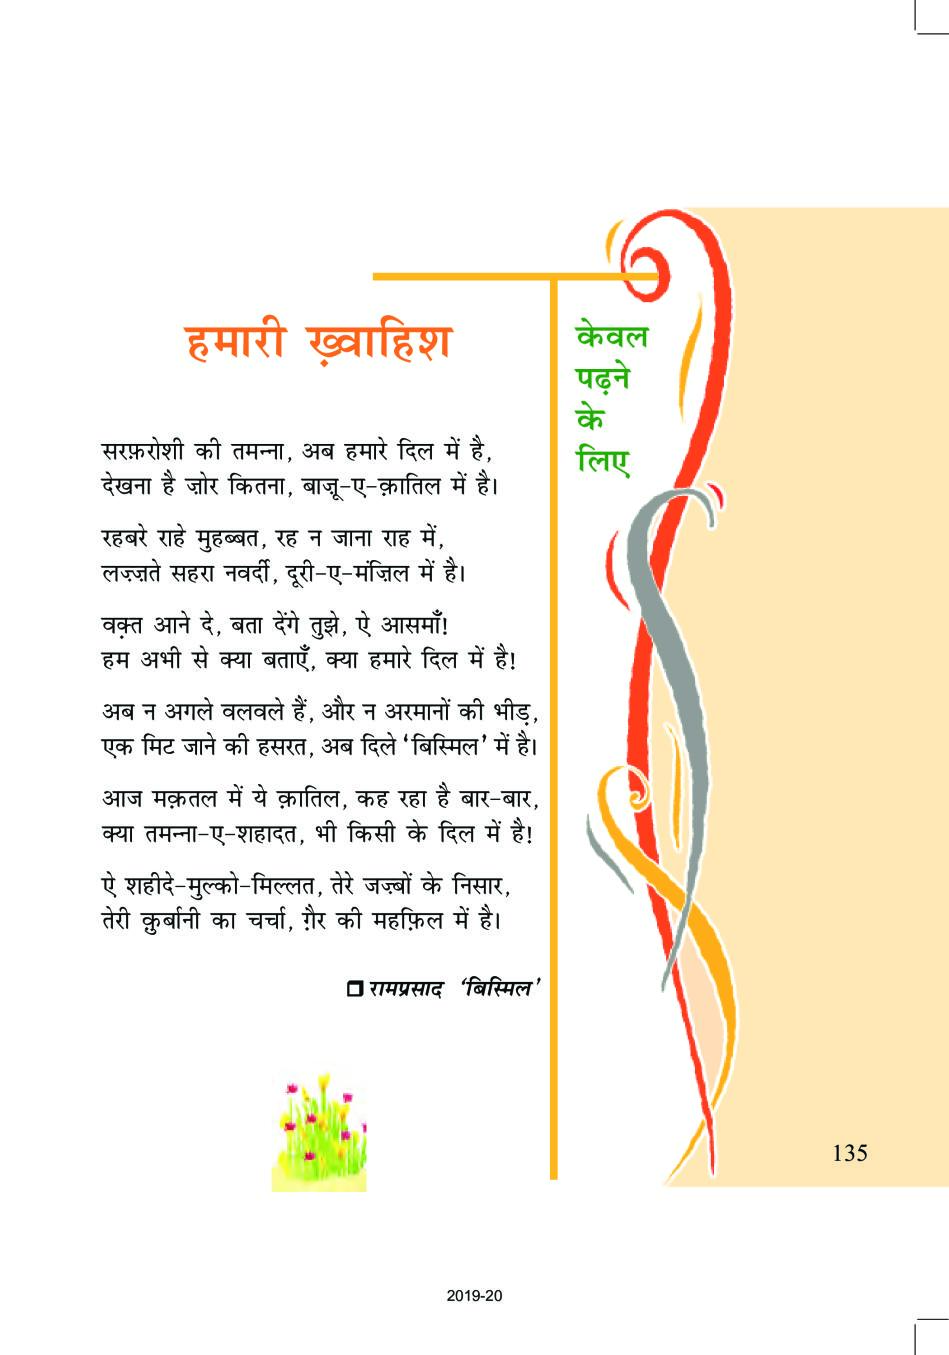 हमारी ख़्वाहिश
केवल
पढ़ने
के
लिए
सरफ़रोशी की तमन्ना, अब हमारे दिल में है,
देखना है ज़ोर कितना, बाज़ू-ए-क़ातिल में है।
रहबरे राहे मुहब्बत, रह न जाना राह में,
लज़्ज़ते सहरा नवर्दी, दूरी-ए-मंज़िल में है।
वक़्त आने दे, बता देंगे तुझे, ऐ आसमाँ!
हम अभी से क्या बताएँ, क्या हमारे दिल में है!
अब न अगले वलवले हैं, और न अरमानों की भीड़,
एक मिट जाने की हसरत, अब दिले 'बिस्मिल' में है।
आज मक़तल में ये क़ातिल, कह रहा है बार-बार,
क्या तमन्ना-ए-शहादत, भी किसी के दिल में है!
ऐ शहीदे-मुल्को-मिल्लत, तेरे जज़्बों के निसार,
तेरी क़ुर्बानी का चर्चा, ग़ैर की महफ़िल में है।
❒ रामप्रसाद 'बिस्मिल'
135
2019-20